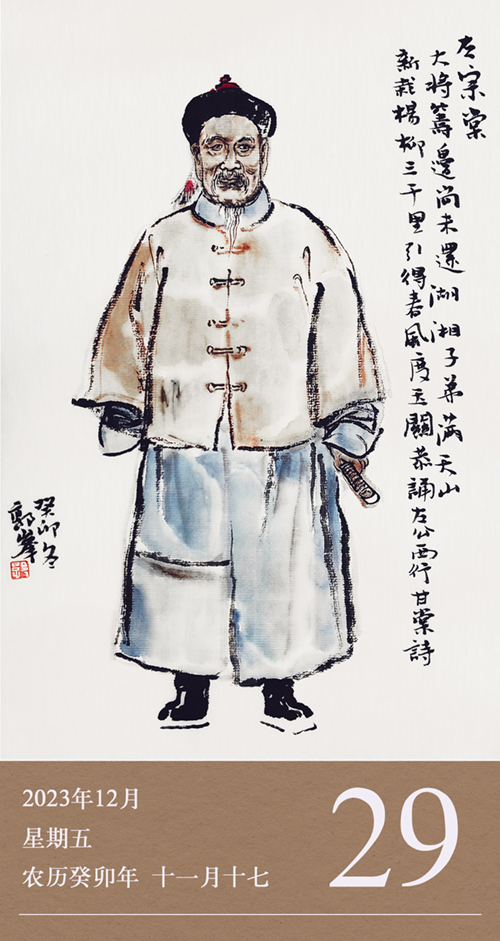 左宗棠
大將籌邊尚未還湖湘子弟滿天山
新栽楊柳三千里引得春風度玉關恭誦左公西行甘棠詩
癸卯冬
郭峯
2023年12月
星期五
农历癸卯年 十一月十七
29